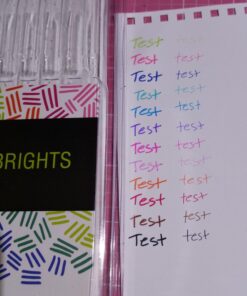 BRIGHTS
Test test
Test test
Test test
Test test
Test test
Test test
Test test
Test test
Test test
Test test
Test test
Test test